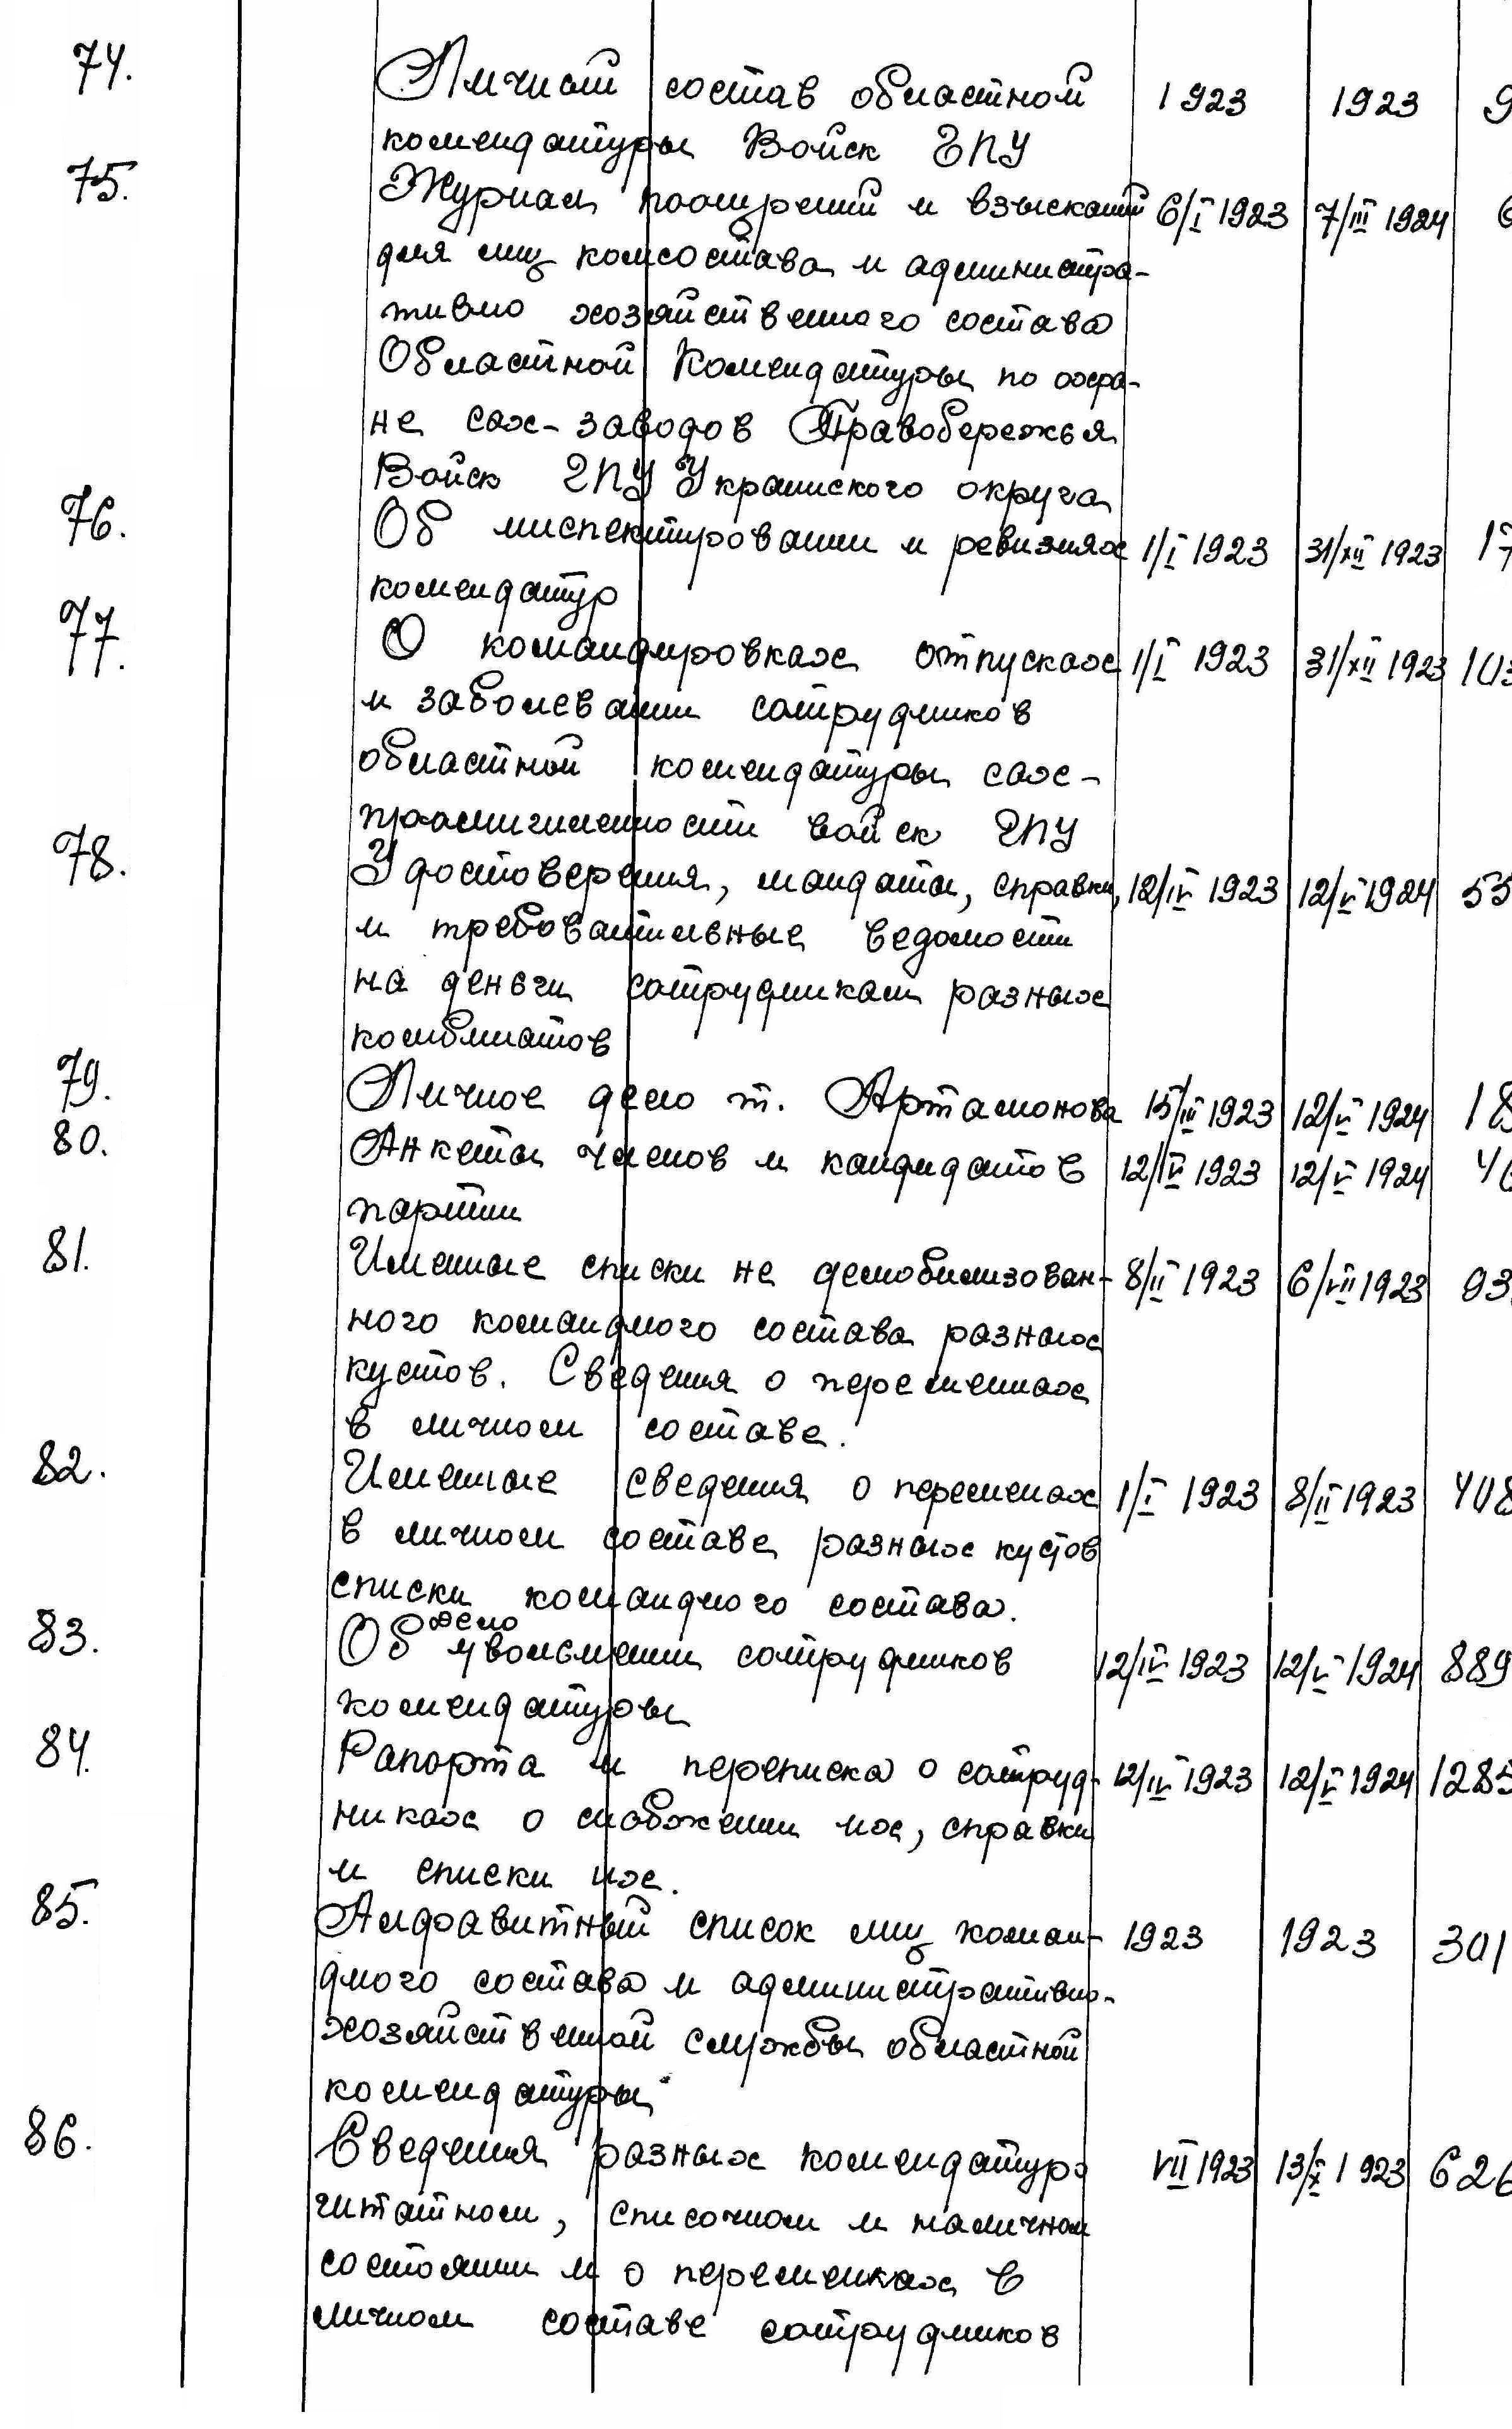 74. Личный состав областной 1923 1923 9
комендатуры Войск ГПУ
75. Журнал поощрений и взысканий 6/I 1923 7/III 1924 6
для лиц комсостава и администра-
тивно хозяйственного состава
Областной Комендатуры по охра-
не сах-заводов Правобережья
Войск ГПУ Украинского округа
76. Об инспектировании и ревизиях 1/I 1923 31/XII 1923 17
комендатур
77. О командировках отпусках 1/I 1923 31/XII 1923 103
и заболевании сотрудников
областной комендатуры сах-
промышленности войск ГПУ
78. Удостоверения, мандаты, справки, 12/IV 1923 12/V 1924 55
и требовательные ведомости
на деньги сотрудникам разных
комбинатов
79. Личное дело т. Артамонова 15/III 1923 12/V 1924 18
80. Анкеты членов и кандидатов 12/IV 1923 12/V 1924 40
партии
81. Именные списки не демобилизован- 8/II 1923 6/VII 1923 93
ного командного состава разных
кустов. Сведения о переменах
в личном составе.
82. Именные сведения о переменах 1/I 1923 8/II 1923 408
в личном составе разных кустов
списки командного состава.
дело
83. Об увольнении сотрудников 12/IV 1923 12/V 1924 889
комендатуры
84. Рапорта и переписка о сотруд- 12/IV 1923 12/V 1924 1285
никах о снабжении их, справки
и списки их.
85. Алфавитный список лиц коман- 1923 1923 301
дного состава и административно-
хозяйственной службы областной
комендатуры
86. Сведения разных комендатур о VII 1923 13/X 1923 626
штатном, списочном и наличном
состоянии и о переменах в
личном составе сотрудников